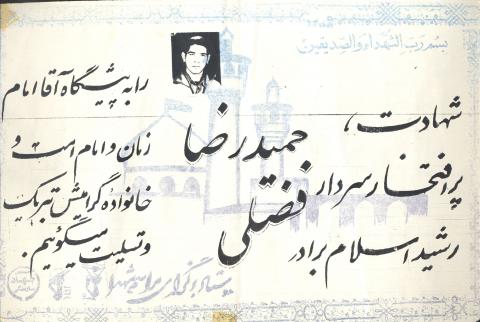 بسم رب الشهداء والصدیقین
شهادت،
پرافتخار سردار
رشید اسلام برادر
حمید رضا
فضلی
را به پیشگاه آقا امام
زمان و امام امت و
خانواده گرامیش تبریک
و تسلیت میگوئیم.
ستاد برگزاری مراسم شهدا